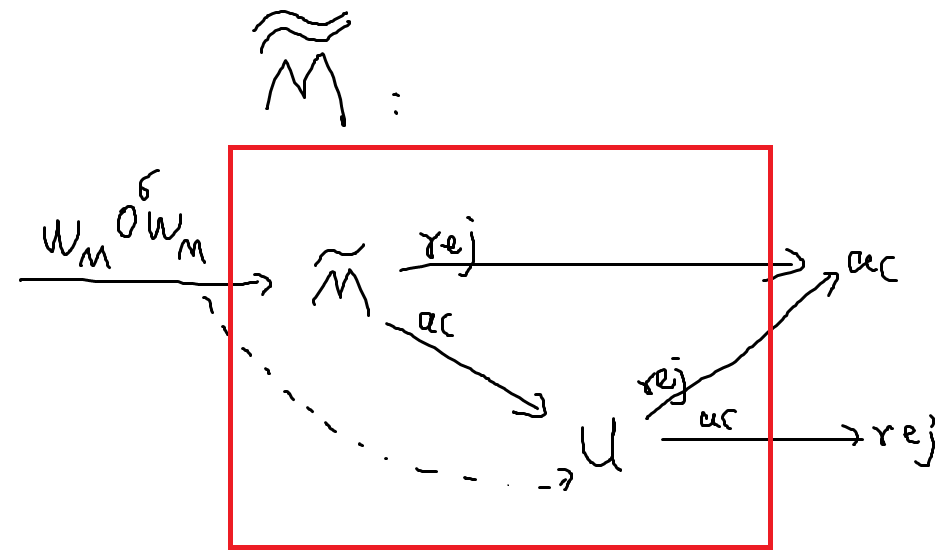 M̃̃ :
W_M 0^6 W_M
M̃
rej
ac
ac
rej
U
ac
rej